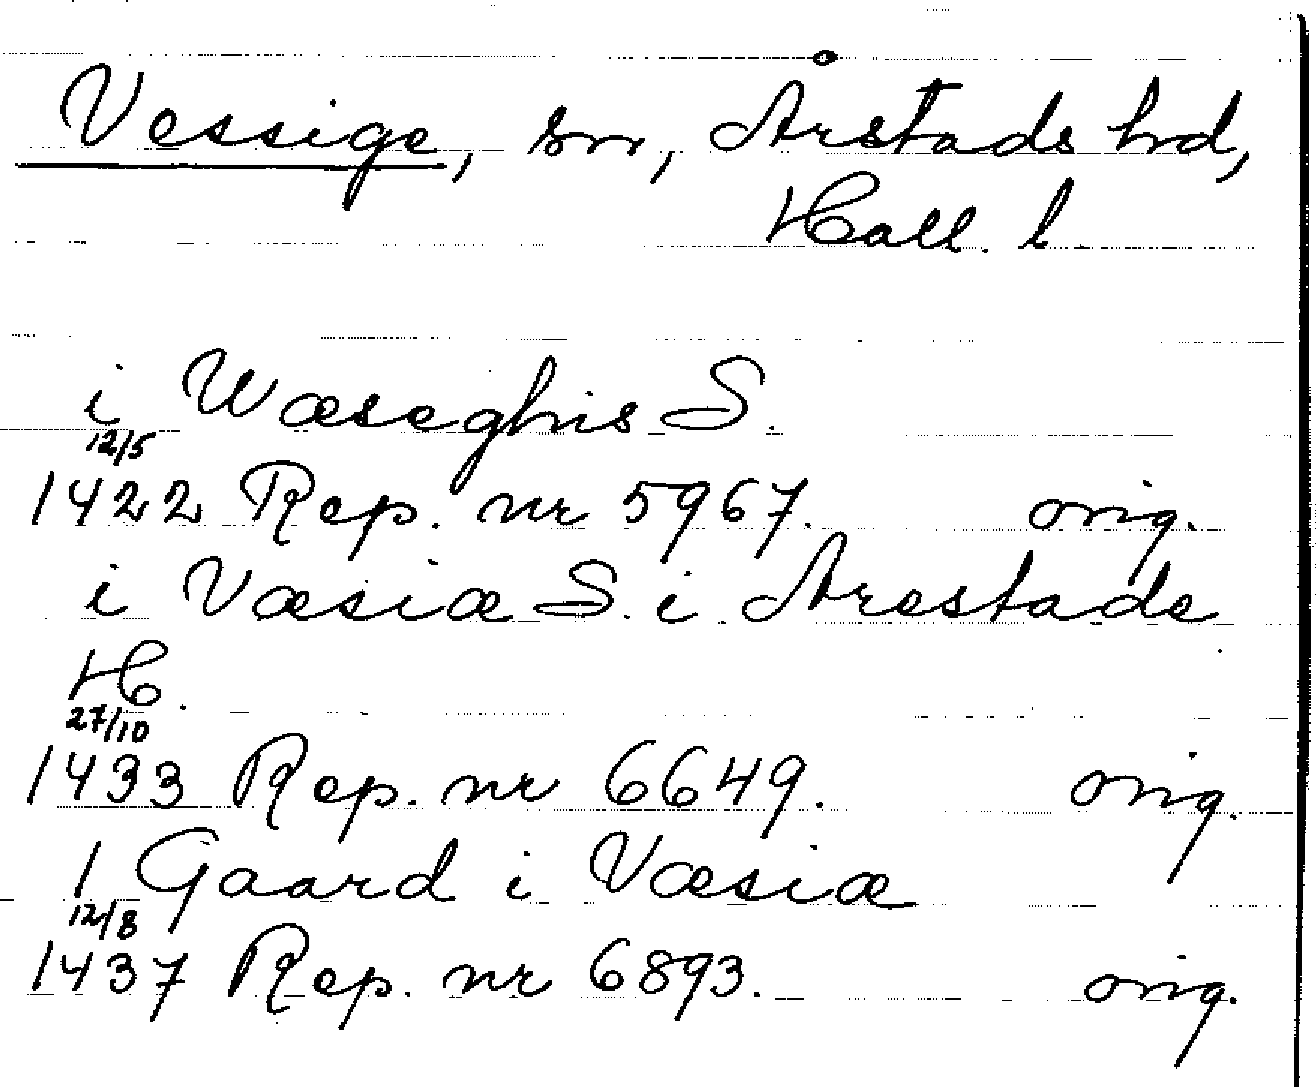 Vessige, sn, Årstads hrd,
Hall. l.
i Wæseghis S.
12/5
1422 Rep. nr 5967. orig.
i Væsiæ S. i Arestade
H.
27/10
1433 Rep. nr 6649. orig.
1 Gaard i Væsiæ
12/8
1437 Rep. nr 6893. orig.